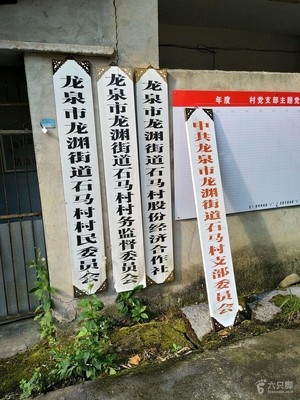 龙泉市龙渊街道石马村村民委员会
龙泉市龙渊街道石马村村务监督委员会
龙泉市龙渊街道石马村股份经济合作社
中共龙泉市龙渊街道石马村支部委员会
年度 村党支部主题党
六只脚